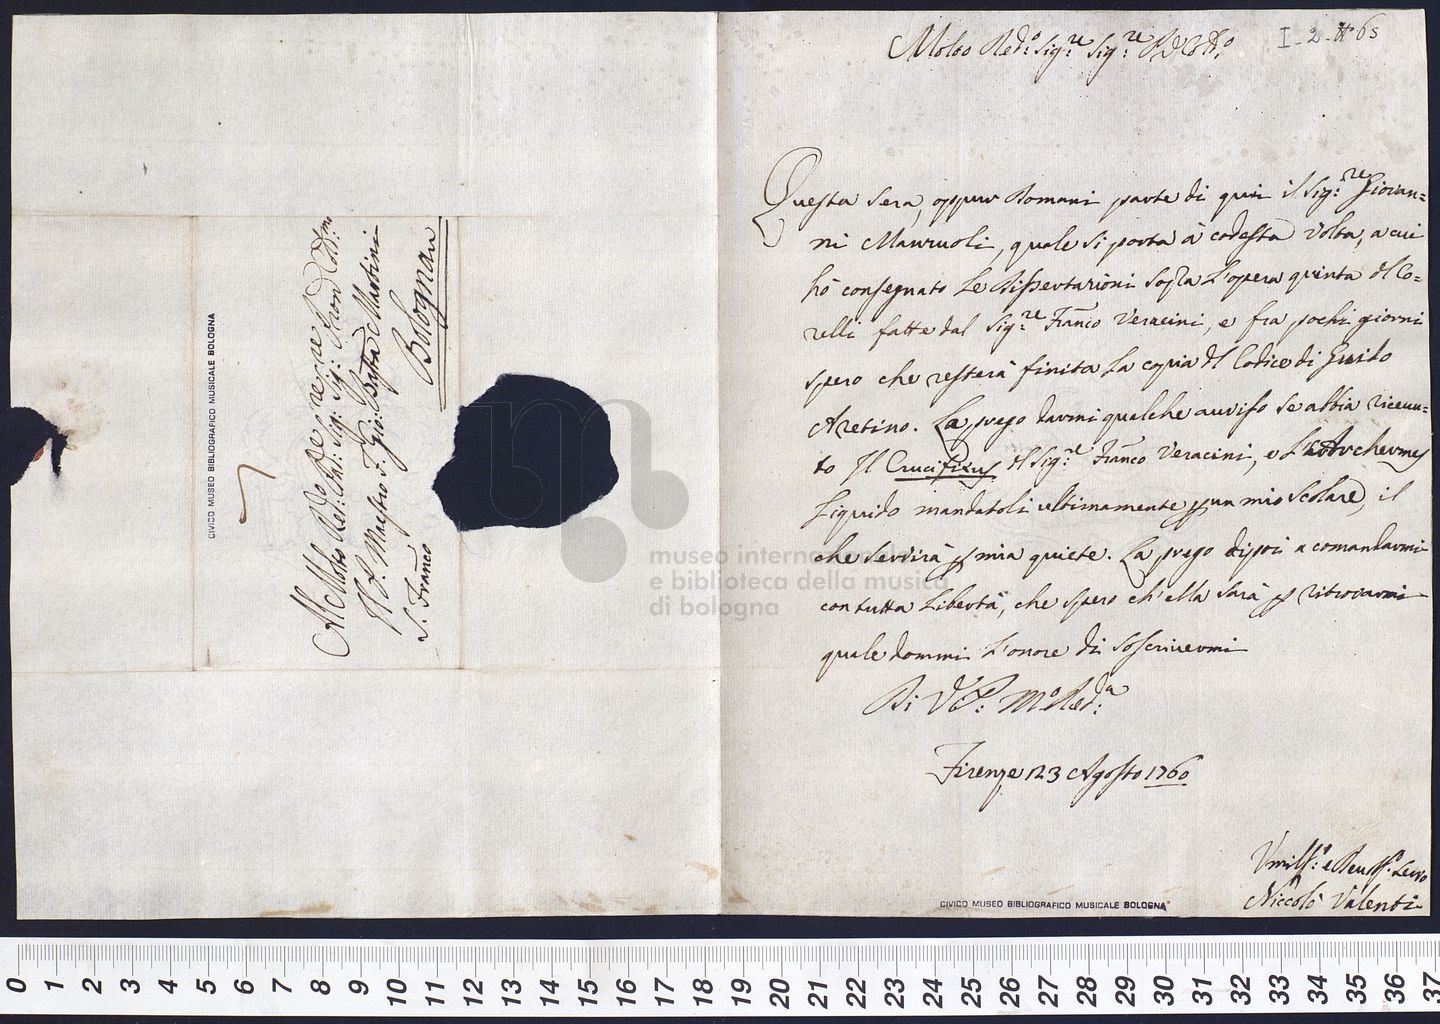 Al Molto Red: Pre Sig: Sig: Pron Col:mo
Il P. Maestro F. Gio: Batta Martini
S. Franco
Bologna
CIVICO MUSEO BIBLIOGRAFICO MUSICALE BOLOGNA
Molto Red:o Sig:re Sig:re P
I-2-#65
Questa sera, oppur Domani parte di qui il Sig:re Giovan=
ni Manzuoli, quale si porta à codesta Volta, a cui
hò consegnato Le Dissertazioni sopra L'opera quinta dl Co=
relli fatte dal Sig:re Franco Veracini, e fra pochi giorni
spero che resterà finita La copia dl Codice di Guido
Aretino. La prego darmi qualche avviso se abbia ricevu=
to Il Crucifixus dl Sig:re Franco Veracini, e L'
Liquido mandatoli ultimamente p un mio Scolare, il
che servirà p mia quiete. La prego dipoi a comandarmi
con tutta Libertà, che spero ch'ella sarà p ritrovarmi
quale dommi L'onore di soscrivermi
Di V. P. Mo Red:a
Firenze 23 Agosto 1760
Umilss:o e Devmss:o Servo
Niccolò Valenti
CIVICO MUSEO BIBLIOGRAFICO MUSICALE BOLOGNA
museo internazionale
e biblioteca della musica
di bologna
0 1 2 3 4 5 6 7 8 9 10 11 12 13 14 15 16 17 18 19 20 21 22 23 24 25 26 27 28 29 30 31 32 33 34 35 36 37